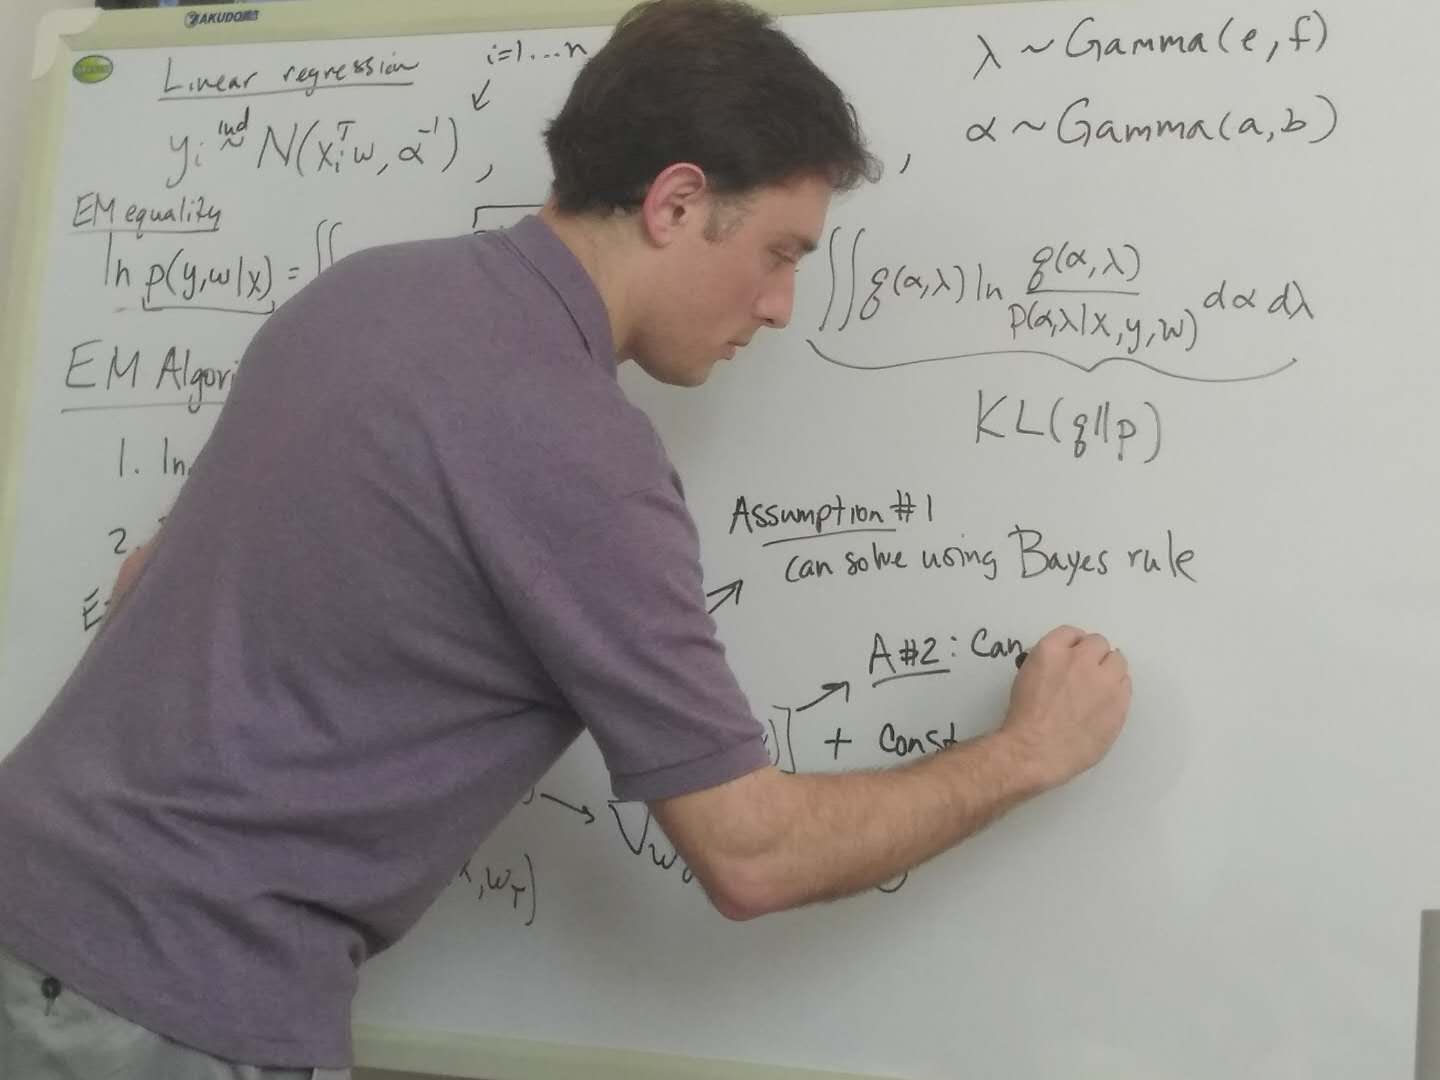 AKUDO
Linear regression
i=1...n
yᵢ ~ind N(xᵢᵀw, α⁻¹),
, λ ~ Gamma(e, f)
α ~ Gamma(a, b)
EM equality
ln p(y,w|x) = ∬
∬ q(α,λ) ln q(α,λ) / p(α,λ|x,y,w) dα dλ
KL(q||p)
EM Algori
1. In
2.
E-
Assumption #1
can solve using Bayes rule
A#2: Can
] + const
→ ∇w
,w_T)